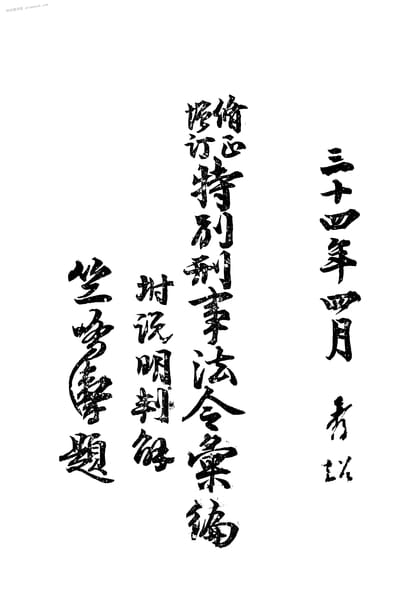 三十四年四月
修正增訂特別刑事法令彙編
附說明判解
題